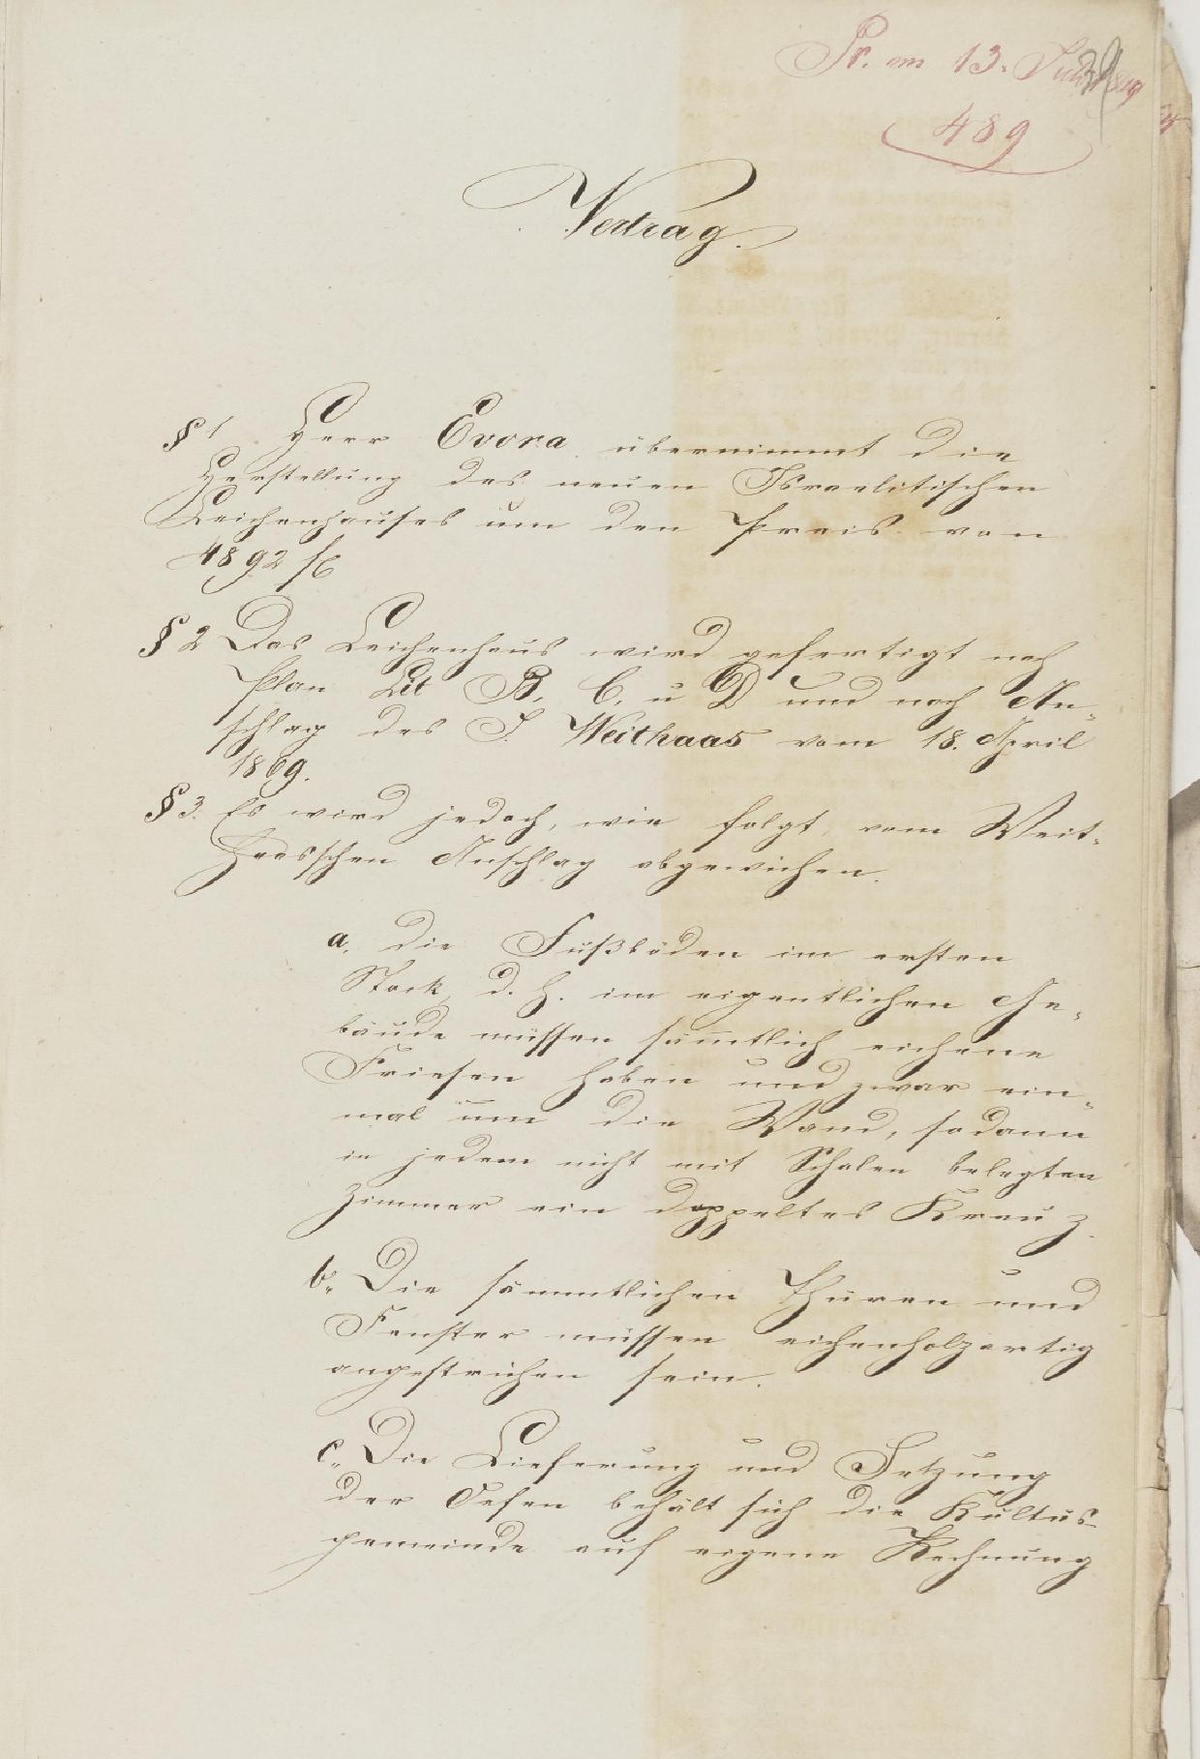 Pr. am 13. Juli
489
Vertrag.
§ 1 Herr Evora übernimmt die
Herstellung des neuen Israelitischen
Leichenhauses um den Preis von
4892 fl
§ 2 Das Leichenhaus wird gefertigt nach
Plan Lit B, C, u D und nach An-
schlag des J. Weithaas vom 18. April
1869.
§ 3. Es wird jedoch, wie folgt, vom Weit-
haasschen Anschlag abgewichen.
a, Die Fußböden im ersten
Stock, d. h. im eigentlichen Ge-
bäude müssen sämtlich eichene
Friesen haben und zwar ein-
mal um die Wand, sodann
in jedem nicht mit Schalen belegten
Zimmer ein doppeltes Kreuz.
b, Die sämmtlichen Thüren und
Fenster müssen eichenholzartig
angestrichen sein.
c, Die Lieferung und Setzung
der Oefen behält sich die Kultus-
gemeinde auf eigene Rechnung